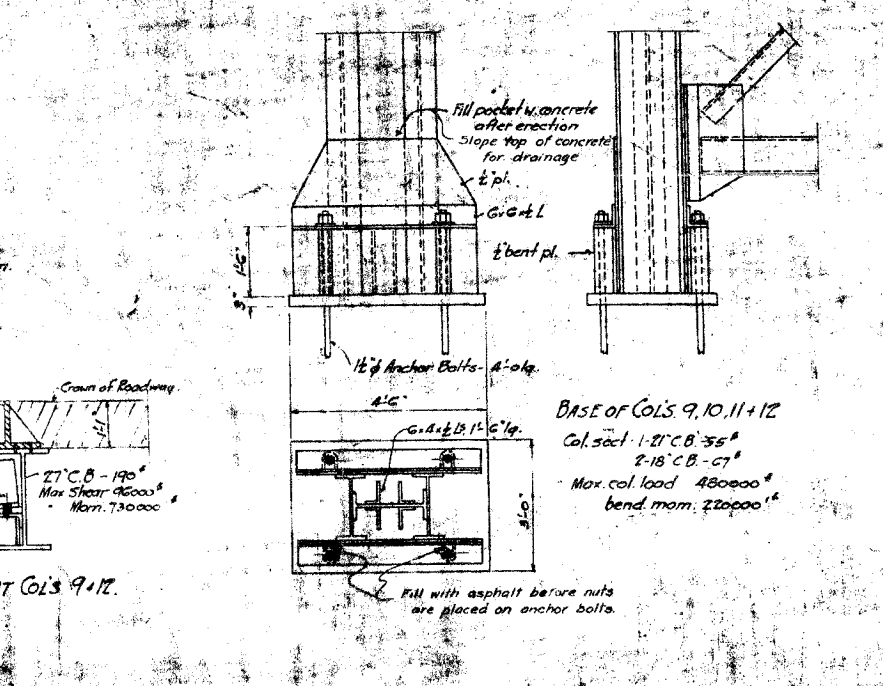 Fill pocket w. concrete
after erection
Slope top of concrete
for drainage
½" pl.
6x6x½ L
½" bent pl.
1'-6"
3"
1½"ϕ Anchor Bolts - 4'-0 lg.
4'-6"
6x4x½ Ls, 1'-6" lg.
3'-0"
Fill with asphalt before nuts
are placed on anchor bolts.
BASE OF COL'S. 9, 10, 11 + 12
Col. sect. 1-21" C.B.-55#
2-18" C.B.-67#
Max. col. load 480000#
bend. mom. 220000'#
Crown of Roadway.
1'-1"
27" C.B - 190#
Max Shear 96000#
" Mom. 730000'#
T COL'S 9+12.